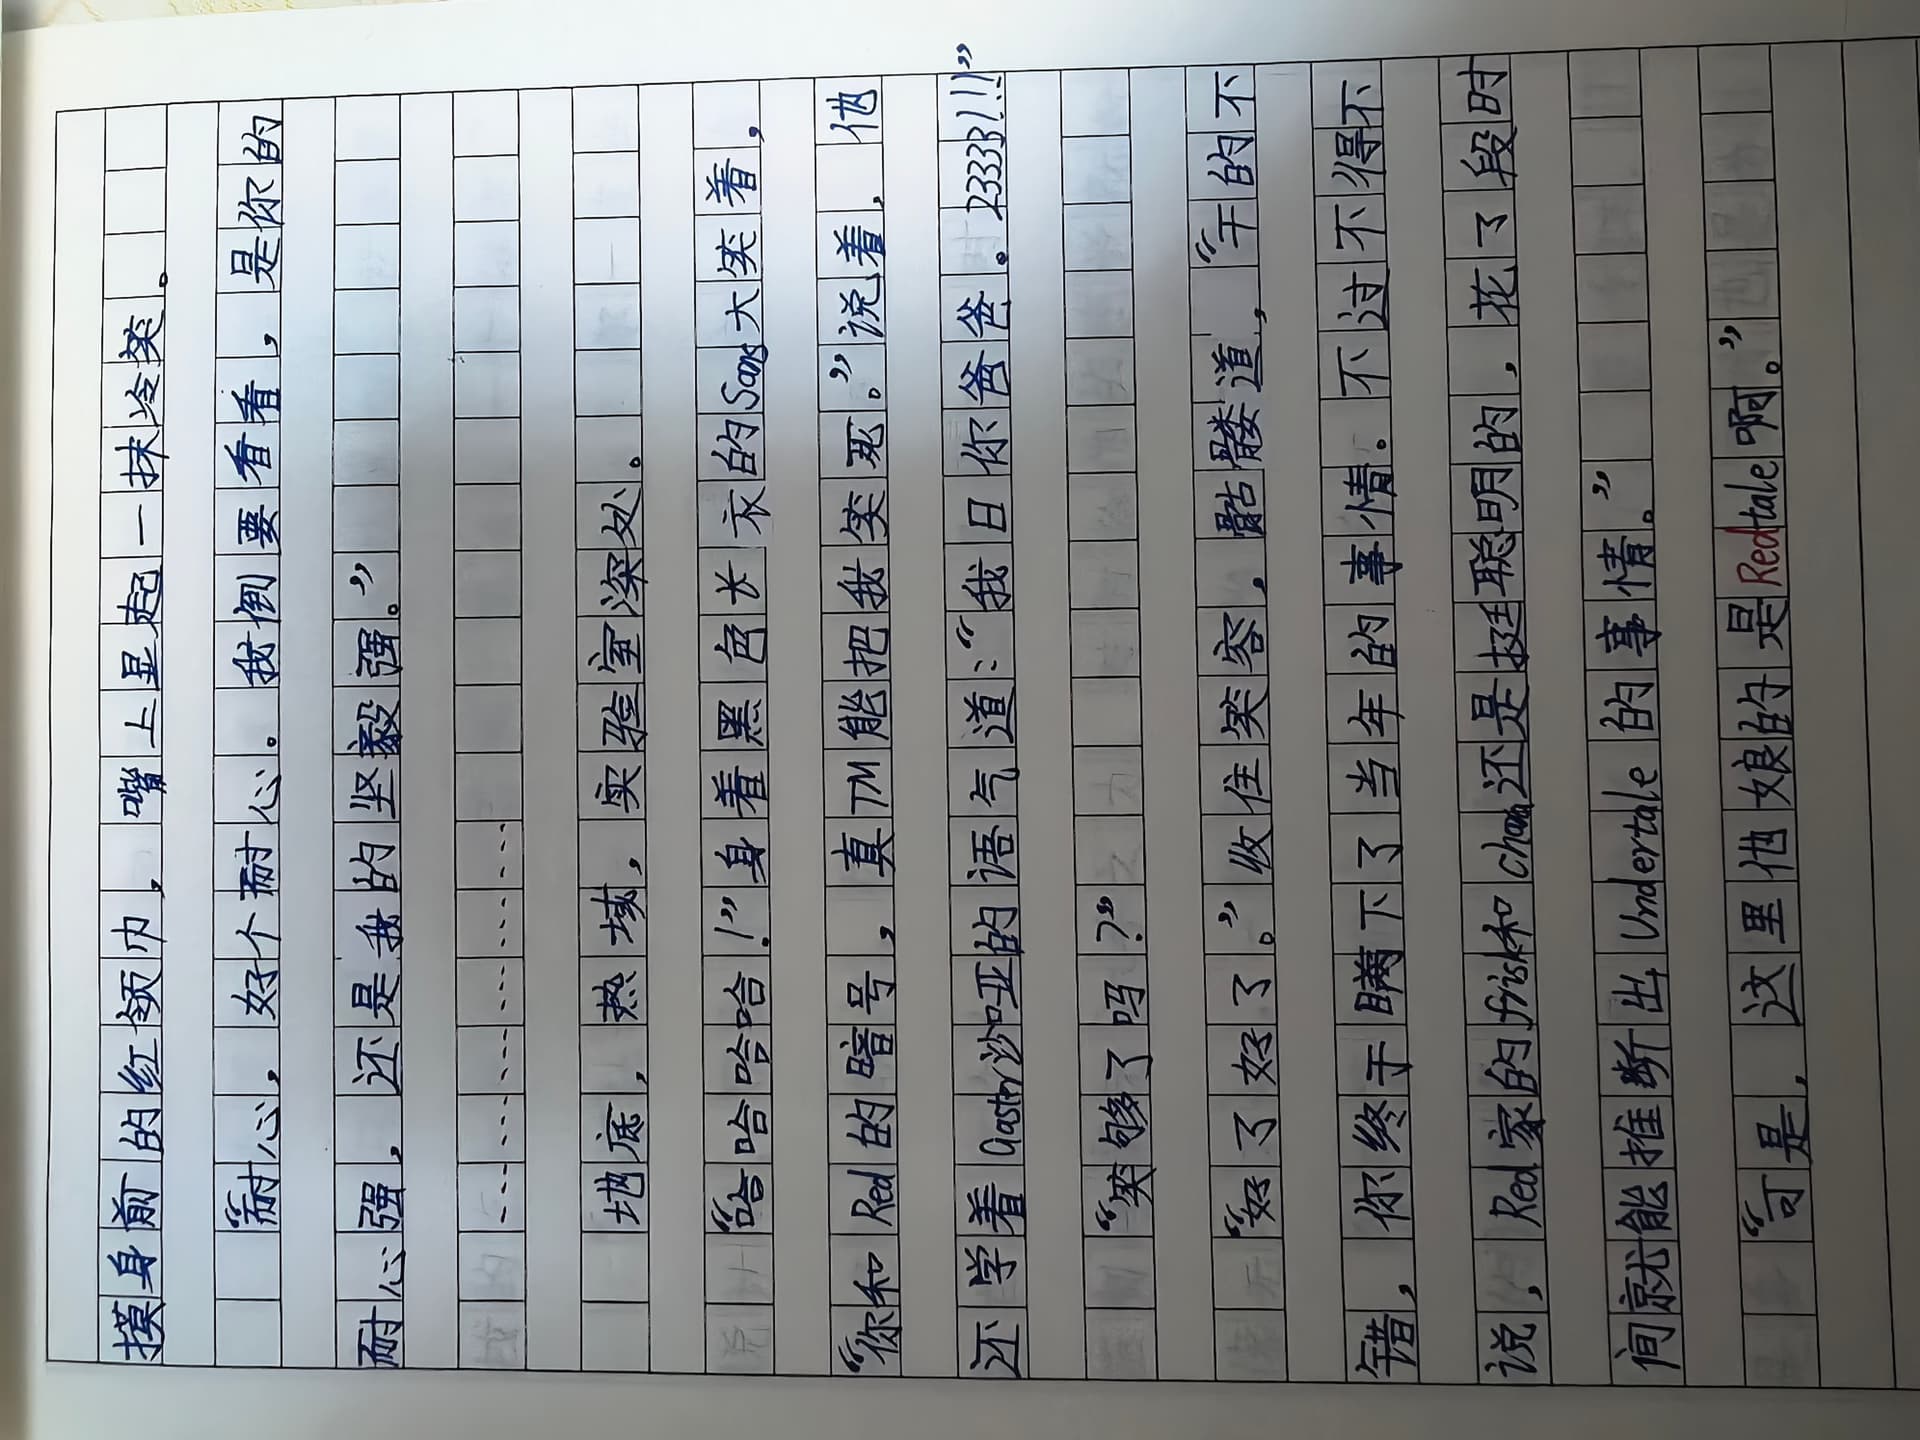 摸身前的红领巾，嘴上显起一抹冷笑。
“耐心，好个耐心。我倒要看看，是你的
耐心强，还是我的坚毅强。”
………………
地底，热域，实验室深处。
“哈哈哈哈！”身着黑色长衣的Sans大笑着，
“你和Red的暗号，真TM能把我笑死。”说着，他
还学着Gaster沙哑的语气道：“我日你爸爸。23333！！！”
“笑够了吗？”
“好了好了。”收住笑容，骷髅道，“干的不
错，你终于瞒下了当年的事情。不过不得不
说，Red家的frisk和chara还是挺聪明的，花了段时
间就能推断出Undertale的事情。”
“可是，这里他娘的是Redtale啊。”